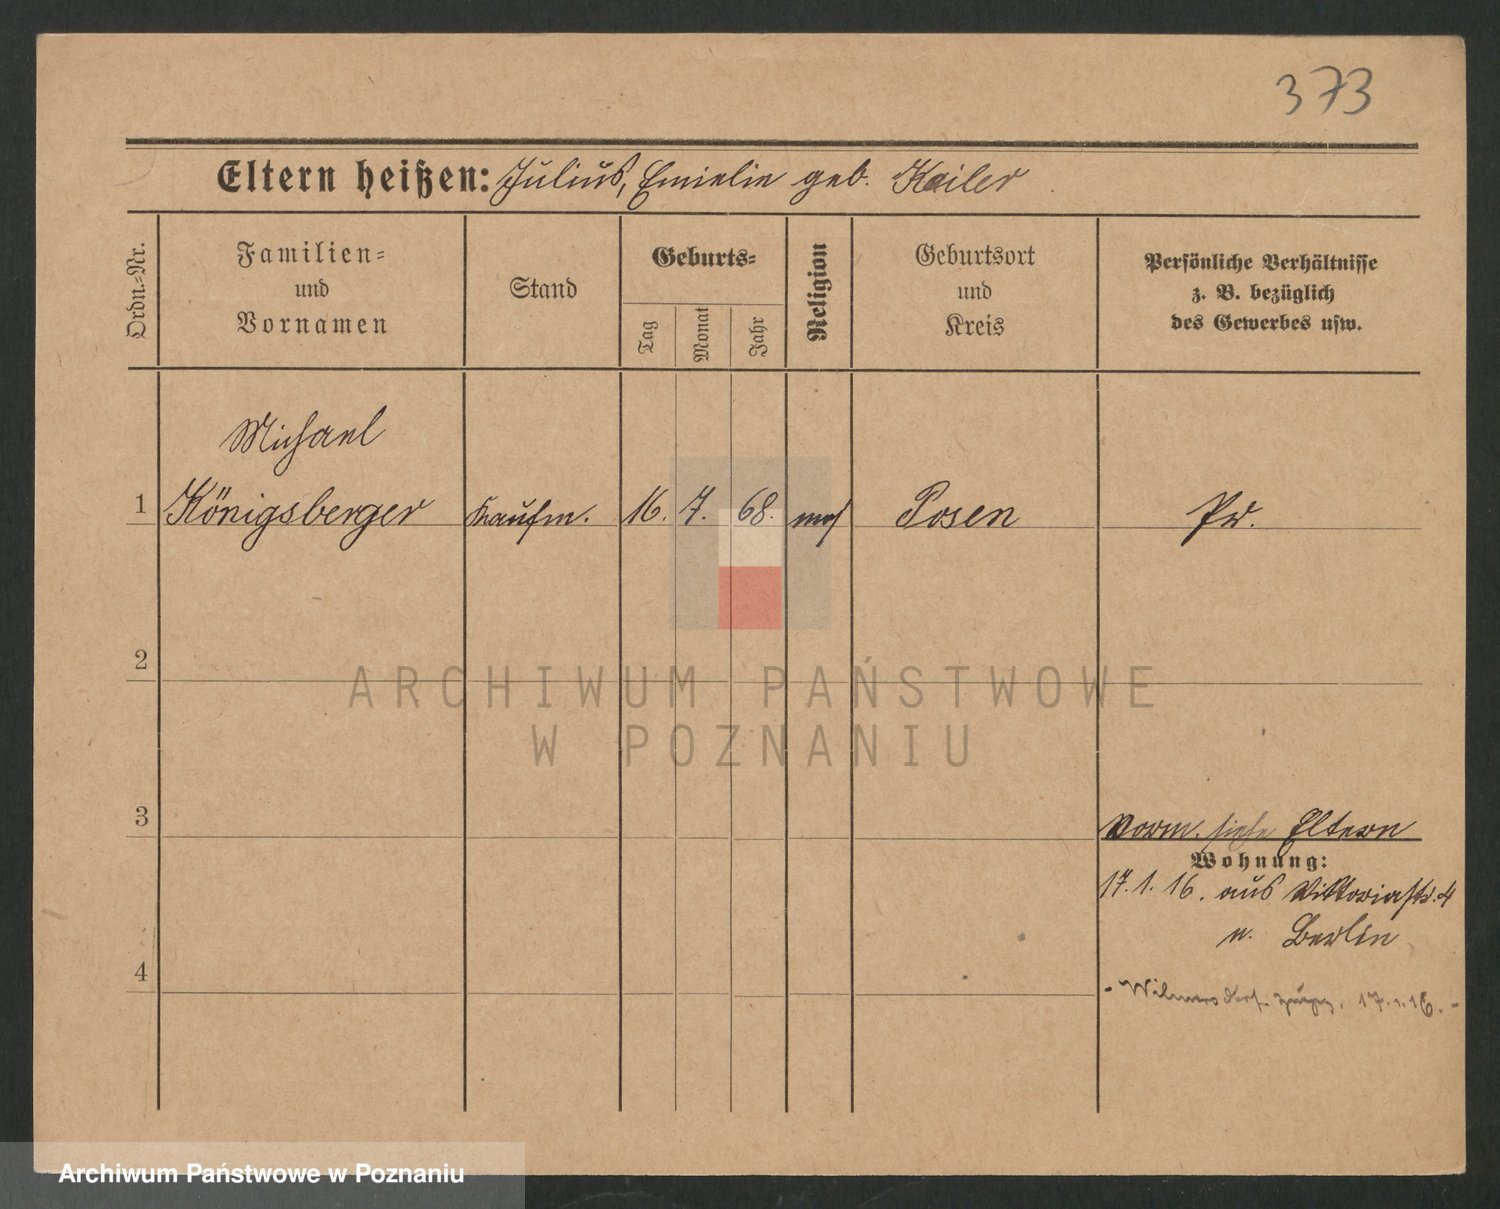 373
Eltern heißen: Julius, Emielie geb. Kailer
Ordn.-Nr.
Familien-
und
Vornamen
Stand
Geburts-
Tag
Monat
Jahr
Religion
Geburtsort
und
Kreis
Persönliche Verhältnisse
z. B. bezüglich
des Gewerbes usw.
Michael
1 Königsberger Kaufm. 16. 7. 68. mos Posen Pr.
2
ARCHIWUM PAŃSTWOWE
W POZNANIU
3
Vorm. siehe Eltern
Wohnung:
17. 1. 16. aus Viktoriastr. 4
n. Berlin
4
- Wilmersdorf 17.1.16. -
Archiwum Państwowe w Poznaniu